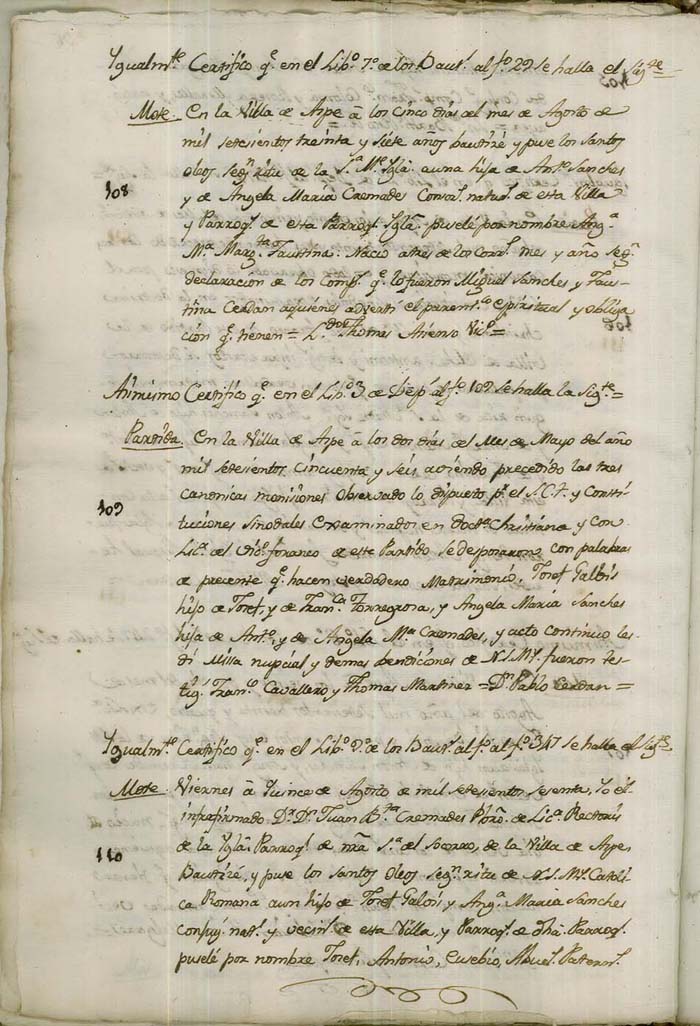 Ygualmte Certifico qe en el Libo 7o de los Bauts al fo 29 se halla el Sigte
Mote. En la Villa de Aspe à los cinco dias del mes de Agosto de
mil setesientos treinta y siete años bautizé y puse los santos
oleos segn ritu de la Sa Me Ygla a una hija de Anto Sanches
108 y de Angela Maria Cremades Consortes naturs de esta Villa
y Parroqs de esta Parroql Ygla puselé por nombre Anga
Ma Margta Faustina: Nacio a tres de los Corrs mes y año segn
declaracion de los Comps qe lo fueron Miguel Sanches y Faus-
tina Cerdan a quienes advertí el parentco espiritual y obliga
ción qe tienen = Ldo Thomas Atienso Vico =
Asimismo Certifico qe en el Libo 3 de Desps al fo 109 se halla la Sigte =
Partida. En la Villa de Aspe à los dos dias del Mes de Mayo del año
mil setesientos Cincuenta y seis aviendo precedido las tres
canonicas monisiones Observado lo dispuesto pr el S.C.T. y Consti-
109 tucciones sinodales Examinados en docta Christiana y con
Lica del Vico foraneo de este Partido se desposaron con palabras
de precente qe hacen verdadero Matrimonio, Josef Galbis
hijo de Josef, y de Franca Torregrosa, y Angela Maria Sanches
hija de Anto, y de Angela Ma Cremades, y acto continuo les
di Missa nupcial y demas bendiciones de N.S.Me fueron tes-
tigs Franco Cavallero y Thomas Martines = Dn Pablo Cerdan =
Ygualmte Certifico qe en el Libo 9o de los Bauts al fo al fo 347 se halla el Sigte
Mote. Viernes à Quince de Agosto de mil setesientos sesenta, Yo el
infrafirmado Dr Dn Juan Bta Cremades Pbro de Lica Rectoris
de la Ygla Parroql de nra Sa del Socorro, de la Villa de Aspe
110 Bautizé, y puse los Santos Oleos segn ritu de N.S.Me Catoli-
ca Romana a un hijo de Josef Galbis y Anga Maria Sanches
Conjug. nats y vecins de esta Villa, y Parroqs de dha Parroql
puselé por nombre Josef, Antonio, Eusebio, Abuels Paterns